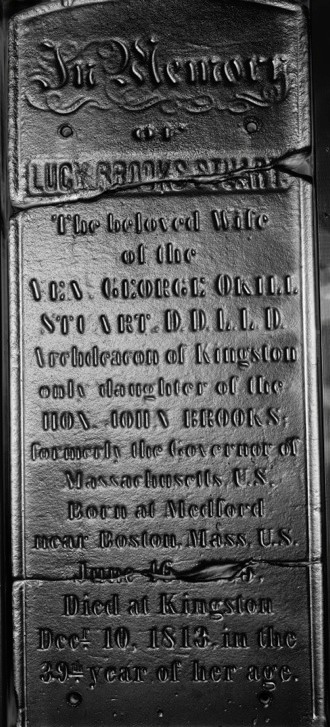 In Memory
OF
LUCY BROOKS STUART
The beloved Wife
of the
VEN. GEORGE OKILL
STUART, D.D. L.L.D.
Archdeacon of Kingston
only daughter of the
HON. JOHN BROOKS,
formerly the Governor of
Massachusetts, U.S.
Born at Medford
near Boston, Mass, U.S.
June 16
Died at Kingston
Decr. 10, 1813, in the
39th year of her age.